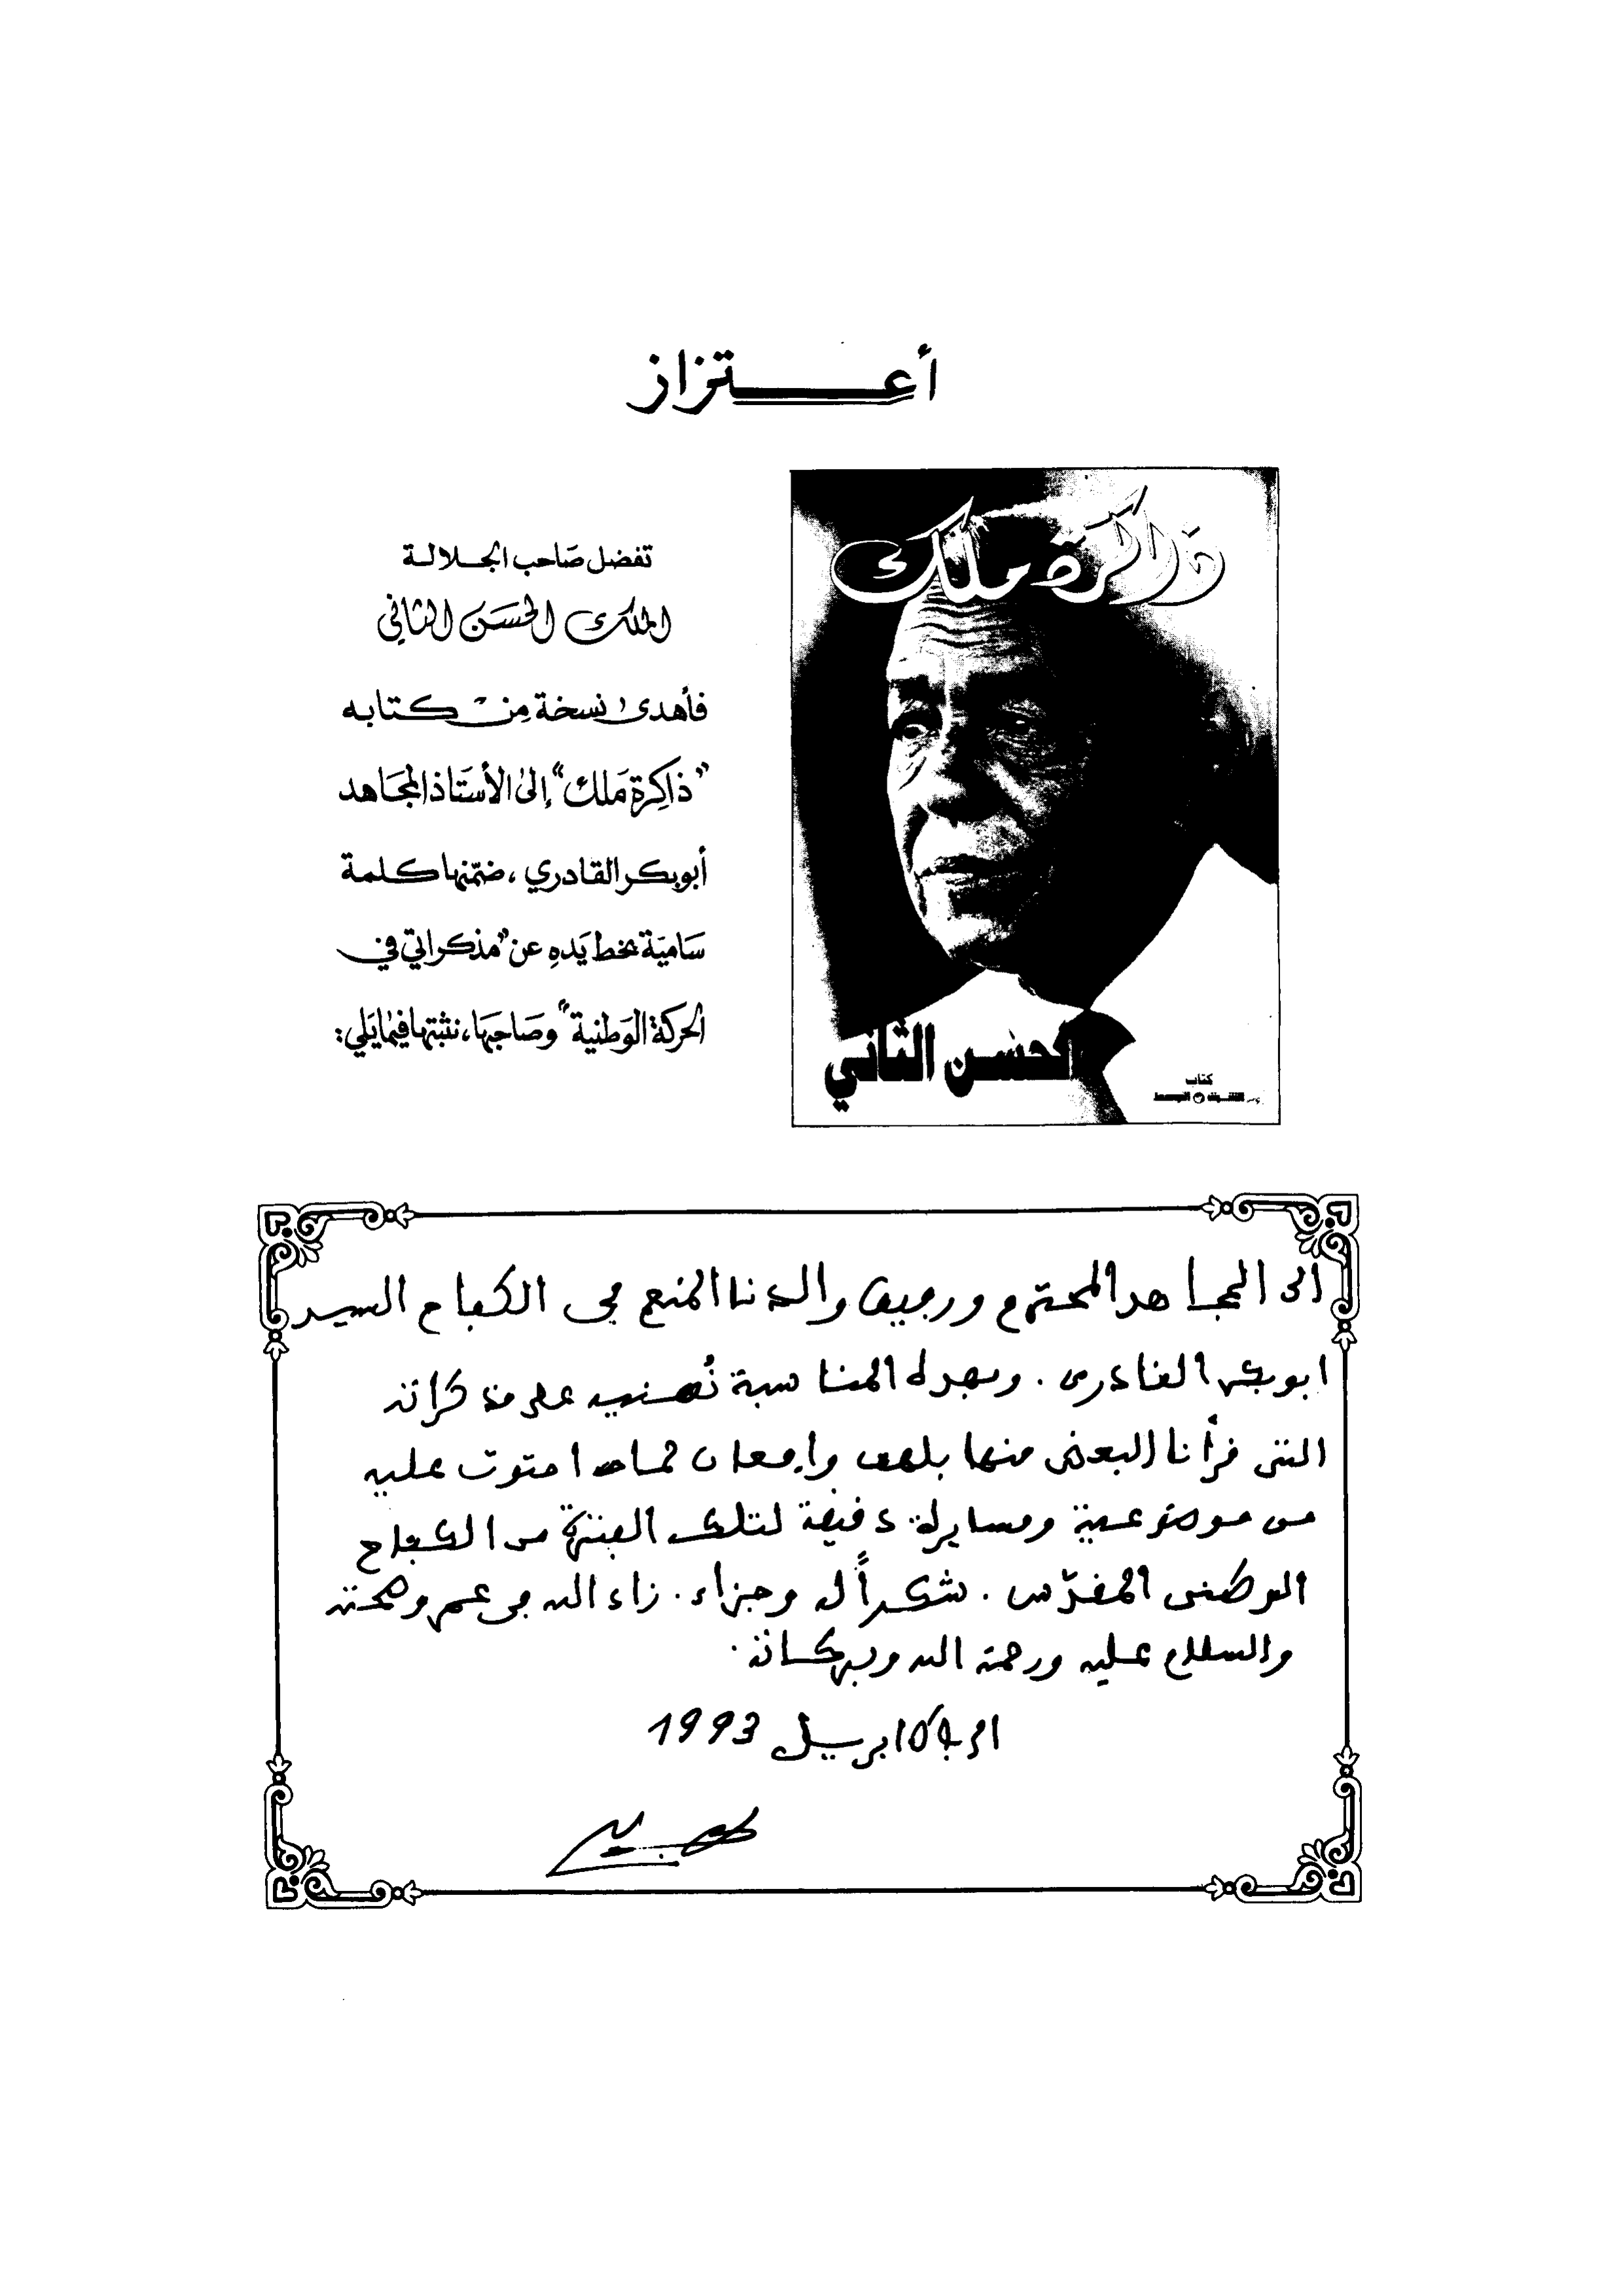 أعتزاز
ذاكرة ملك
الحسن الثاني
كتاب
الشرق الأوسط
تفضل صَاحب الجلالة
الملك الحسَن الثاني
فأهدى نسخة مِن كتابه
"ذاكِرة مَلك" إلى الأستَاذ المجَاهد
أبوبكر القادري، ضمّنها كلمة
سَاميَة بخط يَدهِ عن "مذكراتي في
الحركة الوَطنية" وصَاحبهَا، نثبتها فيمَا يَلي:
الى المجاهد المحترم ورفيق والدنا المنعم في الكفاح السيد
ابوبكر القادري. وبهذه المناسبة نُهنيه على مذكراته
التي قرأنا البعض منها بلهف وإمعان لما احتوت عليه
من موضوعية ومسايرة دقيقة لتلك الفترة من الكفاح
الوطني المقدّس. شكراً له وجزاء. زاد الله في عمره وصحته
والسلام عليه ورحمة الله وبركاته.
ابريل 1993